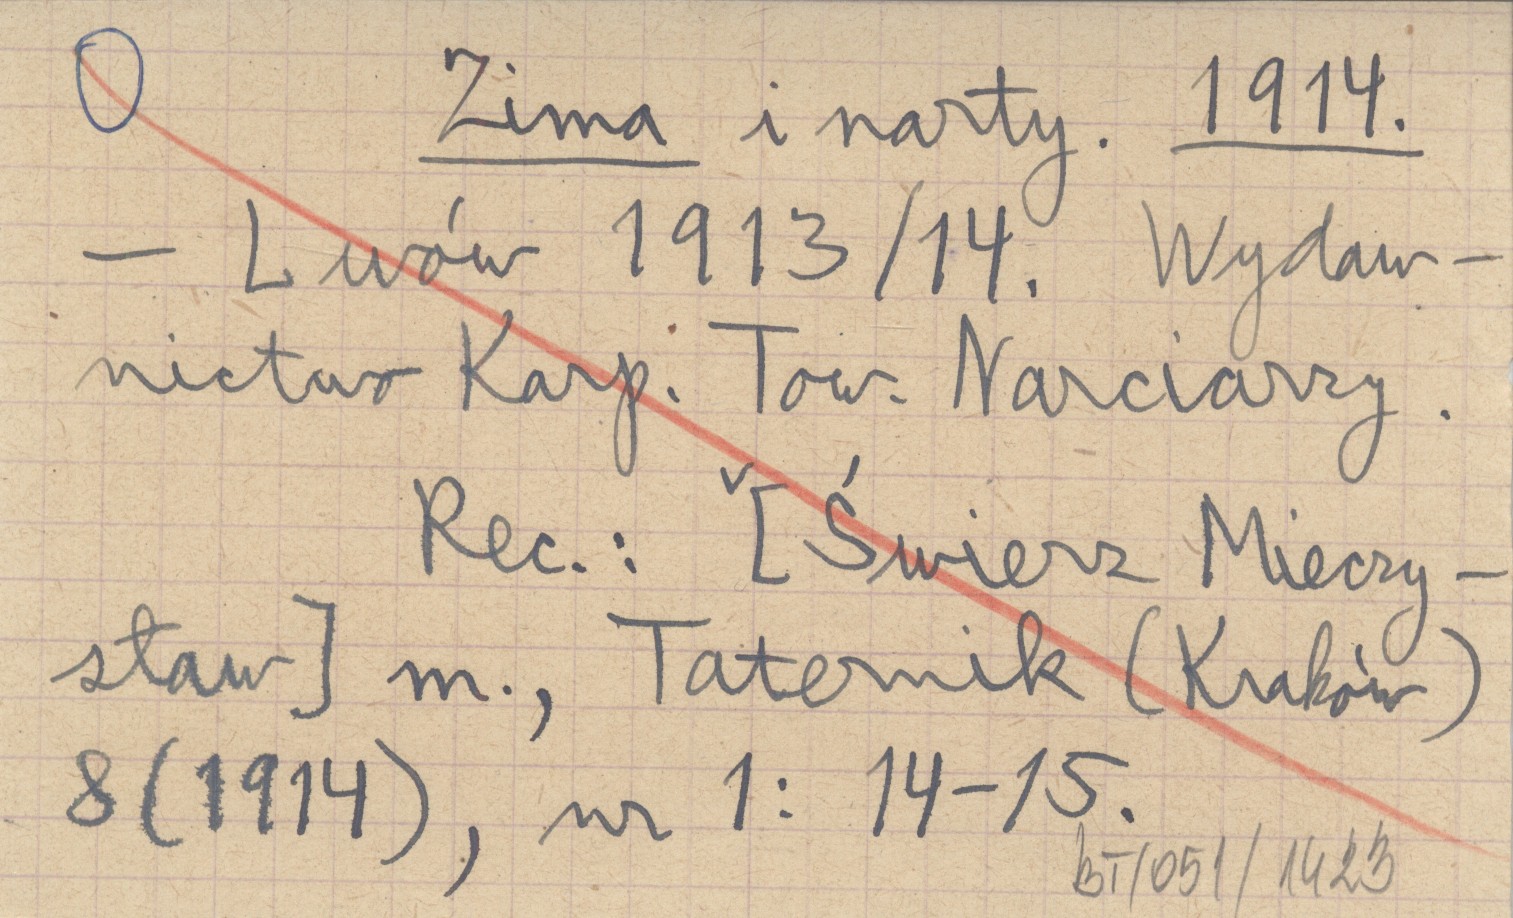 Zima i narty. 1914.
– Lwów 1913/14. Wydaw-
nictwo Karp. Tow. Narciarzy.
Rec.: [Świerz Mieczy-
sław] m., Taternik (Kraków)
8(1914), nr 1: 14-15.
BT/051/1423